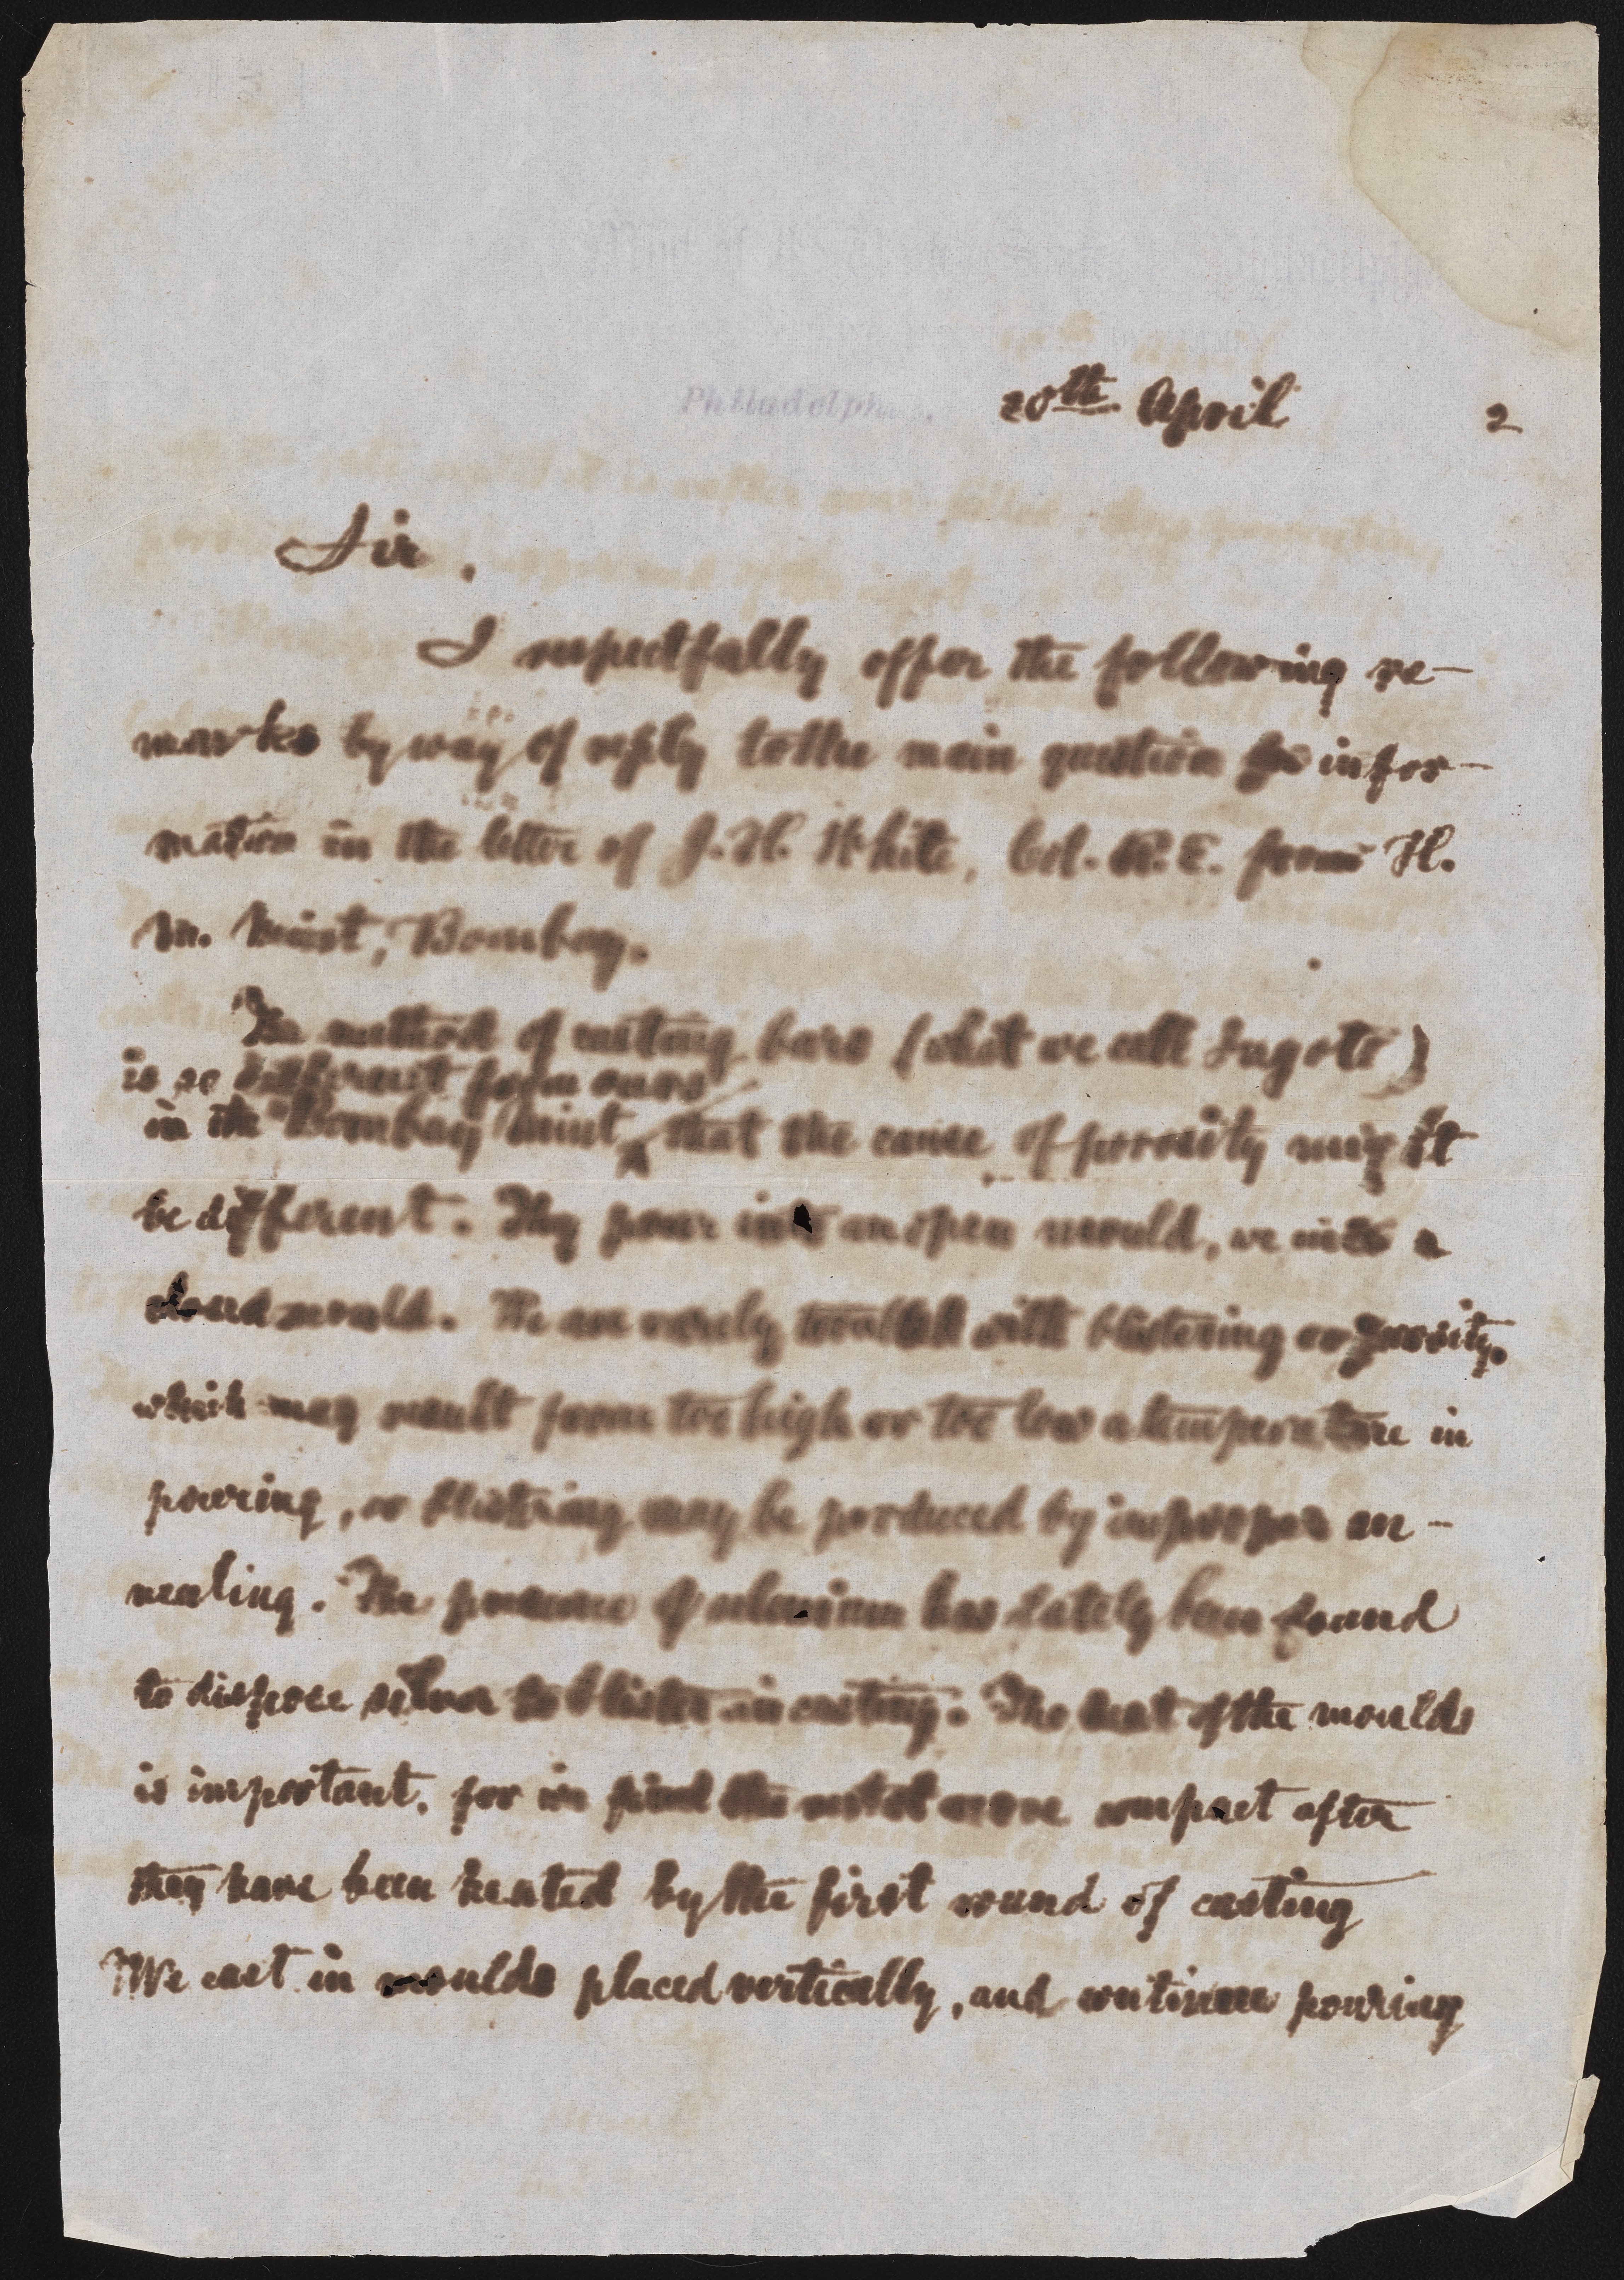 Mint of the United States, Philadelphia
Philadelphia. 20th April 2
Sir,
I respectfully offer the following re-
marks by way of reply to the main question for infor-
mation in the letter of J. H. White, Col. R. E. from H.
M. Mint, Bombay.
The method of casting bars (what we call Ingots)
is so different from ours
in the Bombay Mint, that the cause of porosity might
be different. They pour into an open mould, we into a
closed mould. We are rarely troubled with blistering or porosity,
which may result from too high or too low a temperature in
pouring, or blistering may be produced by improper an-
nealing. The presence of selenium has lately been found
to dispose silver to blister in casting. The heat of the moulds
is important, for we find the metal more compact after
they have been heated by the first round of casting
We cast in moulds placed vertically, and continue pouring